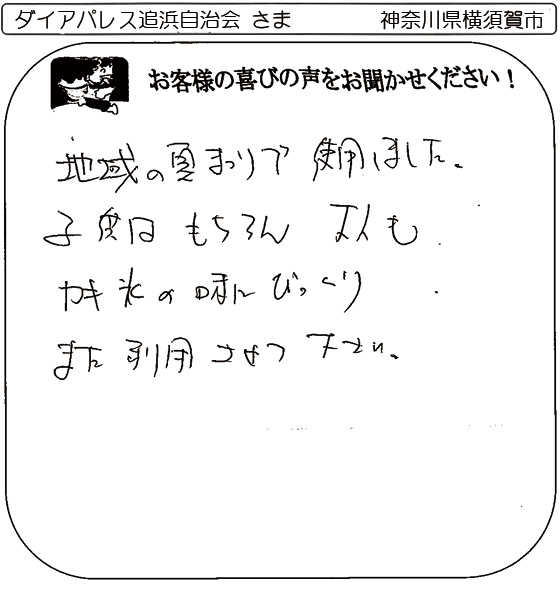 ダイアパレス追浜自治会 さま 神奈川県横須賀市
お客様の喜びの声をお聞かせください！
地域の夏まつりで 使用しました。
子供は もちろん 大人も
カキ氷の味にびっくり
また利用させて下さい。